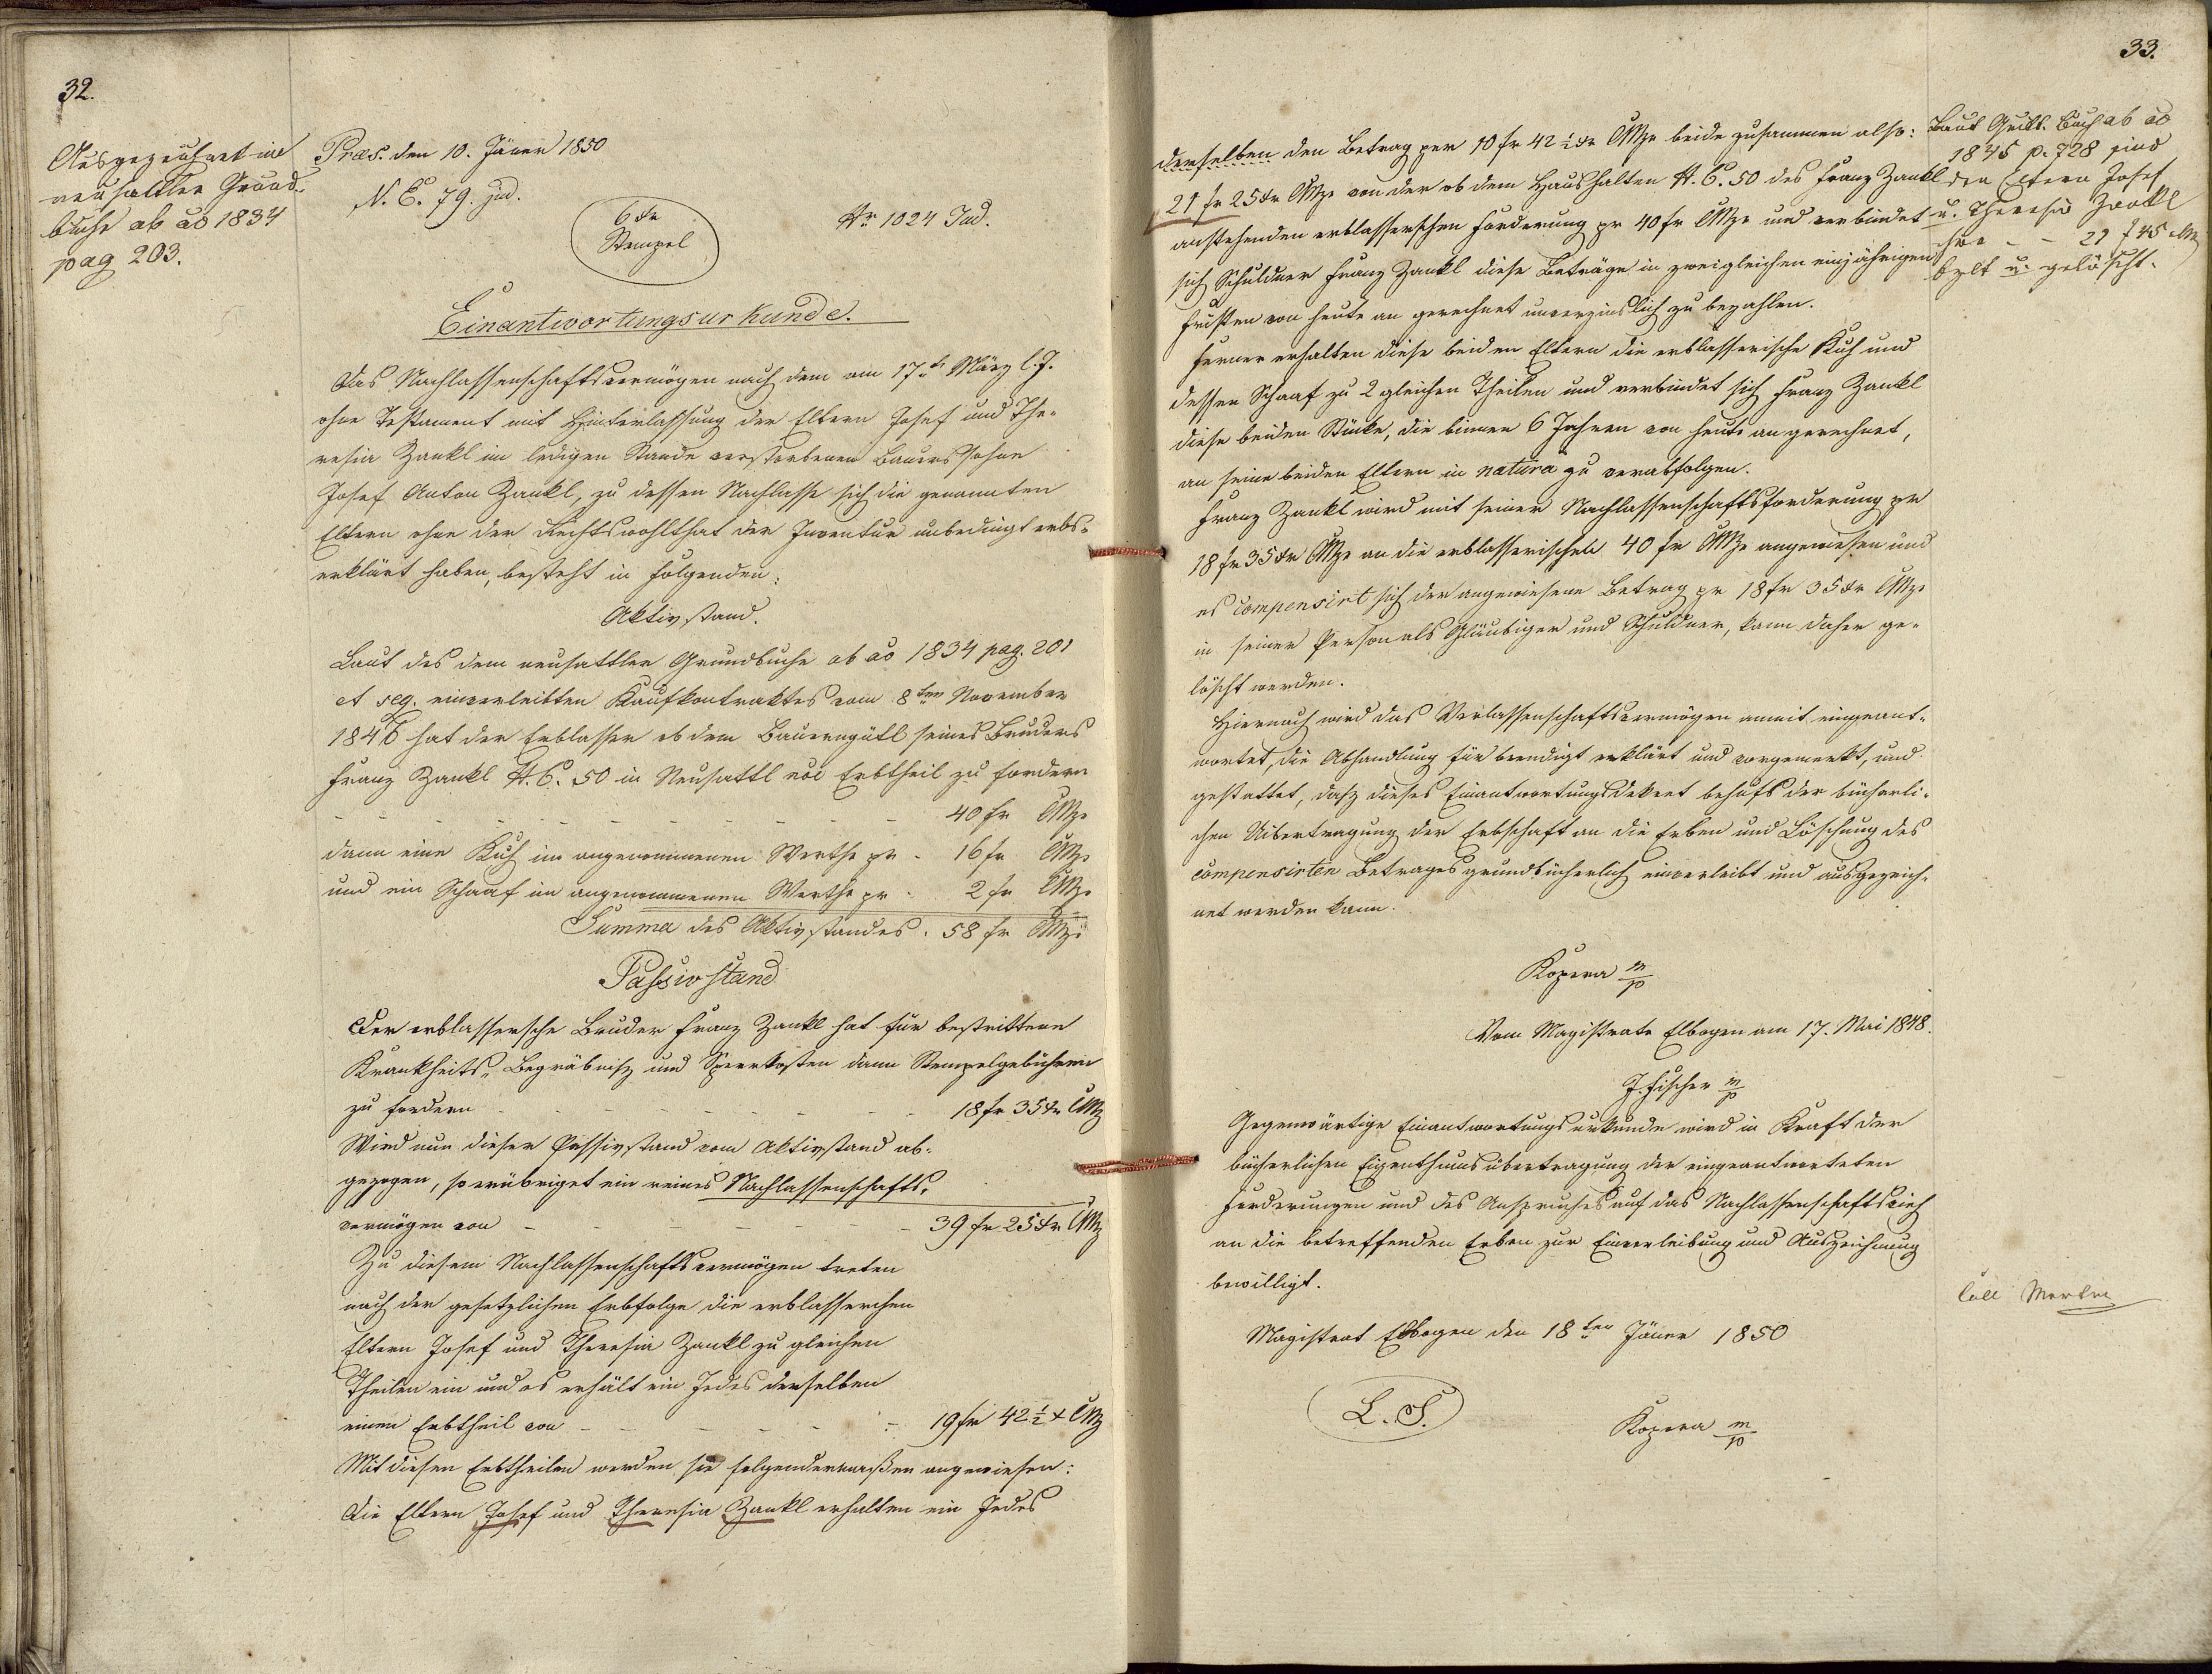 32.
Ausgezeichnet im
neusattler Grund-
buche ab ao 1834
pag 203.
Præs. den 10. Jäner 1850
N. E. 79. jud.
6 Xr
Stempel
Nr. 1024 Jud.
Einantwortungsurkunde.
Das Nachlassenschaftsvermögen nach dem am 17tn März l. J.
ohne Testament mit Hinterlassung der Eltern Josef und The-
resia Zankl im ledigen Stande verstorbenen Bauerssohne
Josef Anton Zankl, zu dessen Nachlasse sich die genannten
Eltern ohne der Rechtswohlthat der Inventur unbedingt erbs-
erklärt haben, besteht in folgenden:
Aktivstand.
Laut des dem neusattler Grundbuche ab ao 1834 pag. 201
et seq. einverleibten Kaufkontraktes vom 8ten November
1846 hat der Erblasser ob dem Bauerngütl seines Bruders
Franz Zankl N. C. 50 in Neusattl als Erbtheil zu fordern
- - - - - - - - - - 40 fr CMze
dann eine Kuh im angenommenen Werthe pr - 16 fr CMze
und ein Schaaf im angenommenen Werthe pr - 2 fr CMze
Summa des Aktivstandes . 58 fr CMze
Passivstand
Der erblassersche Bruder Franz Zankl hat für bestrittene
Krankheits- Begräbniß und Sperrkosten dann Stempelgebühren
zu fordern - - - - - - - - 18 fr 35 Xr CMz
Wird nun dieser Passivstand vom Aktivstand ab-
gezogen, so erübriget ein reines Nachlassenschafts-
vermögen von - - - - - - - 39 fr 25 Xr CMz
Zu diesem Nachlassenschaftsvermögen treten
nach der gesetzlichen Erbfolge die erblasserchen
Eltern Josef und Theresia Zankl zu gleichen
Theilen ein und es erhält ein Jedes derselben
einen Erbtheil von - - - - - - 19 fr 42 1/2 X CMz
Mit diesen Erbtheilen werden sie folgendermaßen angewiesen:
Die Eltern Josef und Theresia Zankl erhalten ein Jedes
33.
derselben den Betrag per 10 fr 42 1/2 Xr CMze beide zusammen also:
21 fr 25 Xr CMze von der ob dem Haushalten N. C. 50 des Franz Zankl
anstehenden erblasserschen Forderung pr 40 fr CMze und verbindet
sich Schuldner Franz Zankl diese Beträge in zwei gleichen einjährigen
Fristen von heute an gerechnet unverzinslich zu bezahlen.
Ferner erhalten diese beiden Eltern die erblasserische Kuh und
dessen Schaaf zu 2 gleichen Theilen und verbindet sich Franz Zankl
diese beiden Stücke, die binnen 6 Jahren von heute an gerechnet,
an seine beiden Eltern in natura zu verabfolgen.
Franz Zankl wird mit seiner Nachlassenschaftsforderung pr
18 fr 35 Xr CMze an die erblasserischen 40 fr CMze angewiesen und
es compensirt sich der angewiesene Betrag pr 18 fr 35 Xr CMze
in seiner Person als Gläubiger und Schuldner, kann daher ge-
löscht werden.
Hiernach wird das Verlassenschaftsvermögen anmit eingeant-
wortet, die Abhandlung für beendigt erklärt und vorgemerkt, und
gestattet, daß dieses Einantwortungsdekret behufs der bücherli-
chen Uibertragung der Erbschaft an die Erben und Löschung des
compensirten Betrages grundbücherlich einverleibt und ausgezeich-
net werden kann.
Kopera m/p
Vom Magistrate Elbogen am 17. Mai 1848.
J. Fischer m/p
Gegenwärtige Einantwortungsurkunde wird in Kraft der
bücherlichen Eigenthumsübertragung der eingeantworteten
Forderungen und des Anspruches auf das Nachlassenschaftsvieh
an die betreffenden Erben zur Einverleibung und Auszeichnung
bewilligt.
Magistrat Elbogen den 18ten Jäner 1850
L. S.
Kopera m/p
Laut Quitt. Buch ab ao
1845 p. 728 sind
den Eltern Josef
u. Theresia Zankl
ihre - - 21 f 45 CMz
bzlt u. gelöscht.
Coll